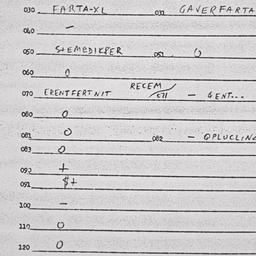 030 FARTA-XL 031 GAVERFARTA
040 -
050 STEMEDIKPER 051. 0
060 0
RECEM
070 ERENTFERTNIT - GENT...
080 0
081 0 082 - OPLUCLING
083 0
092 +
091 $+
100 -
110 0
120 0